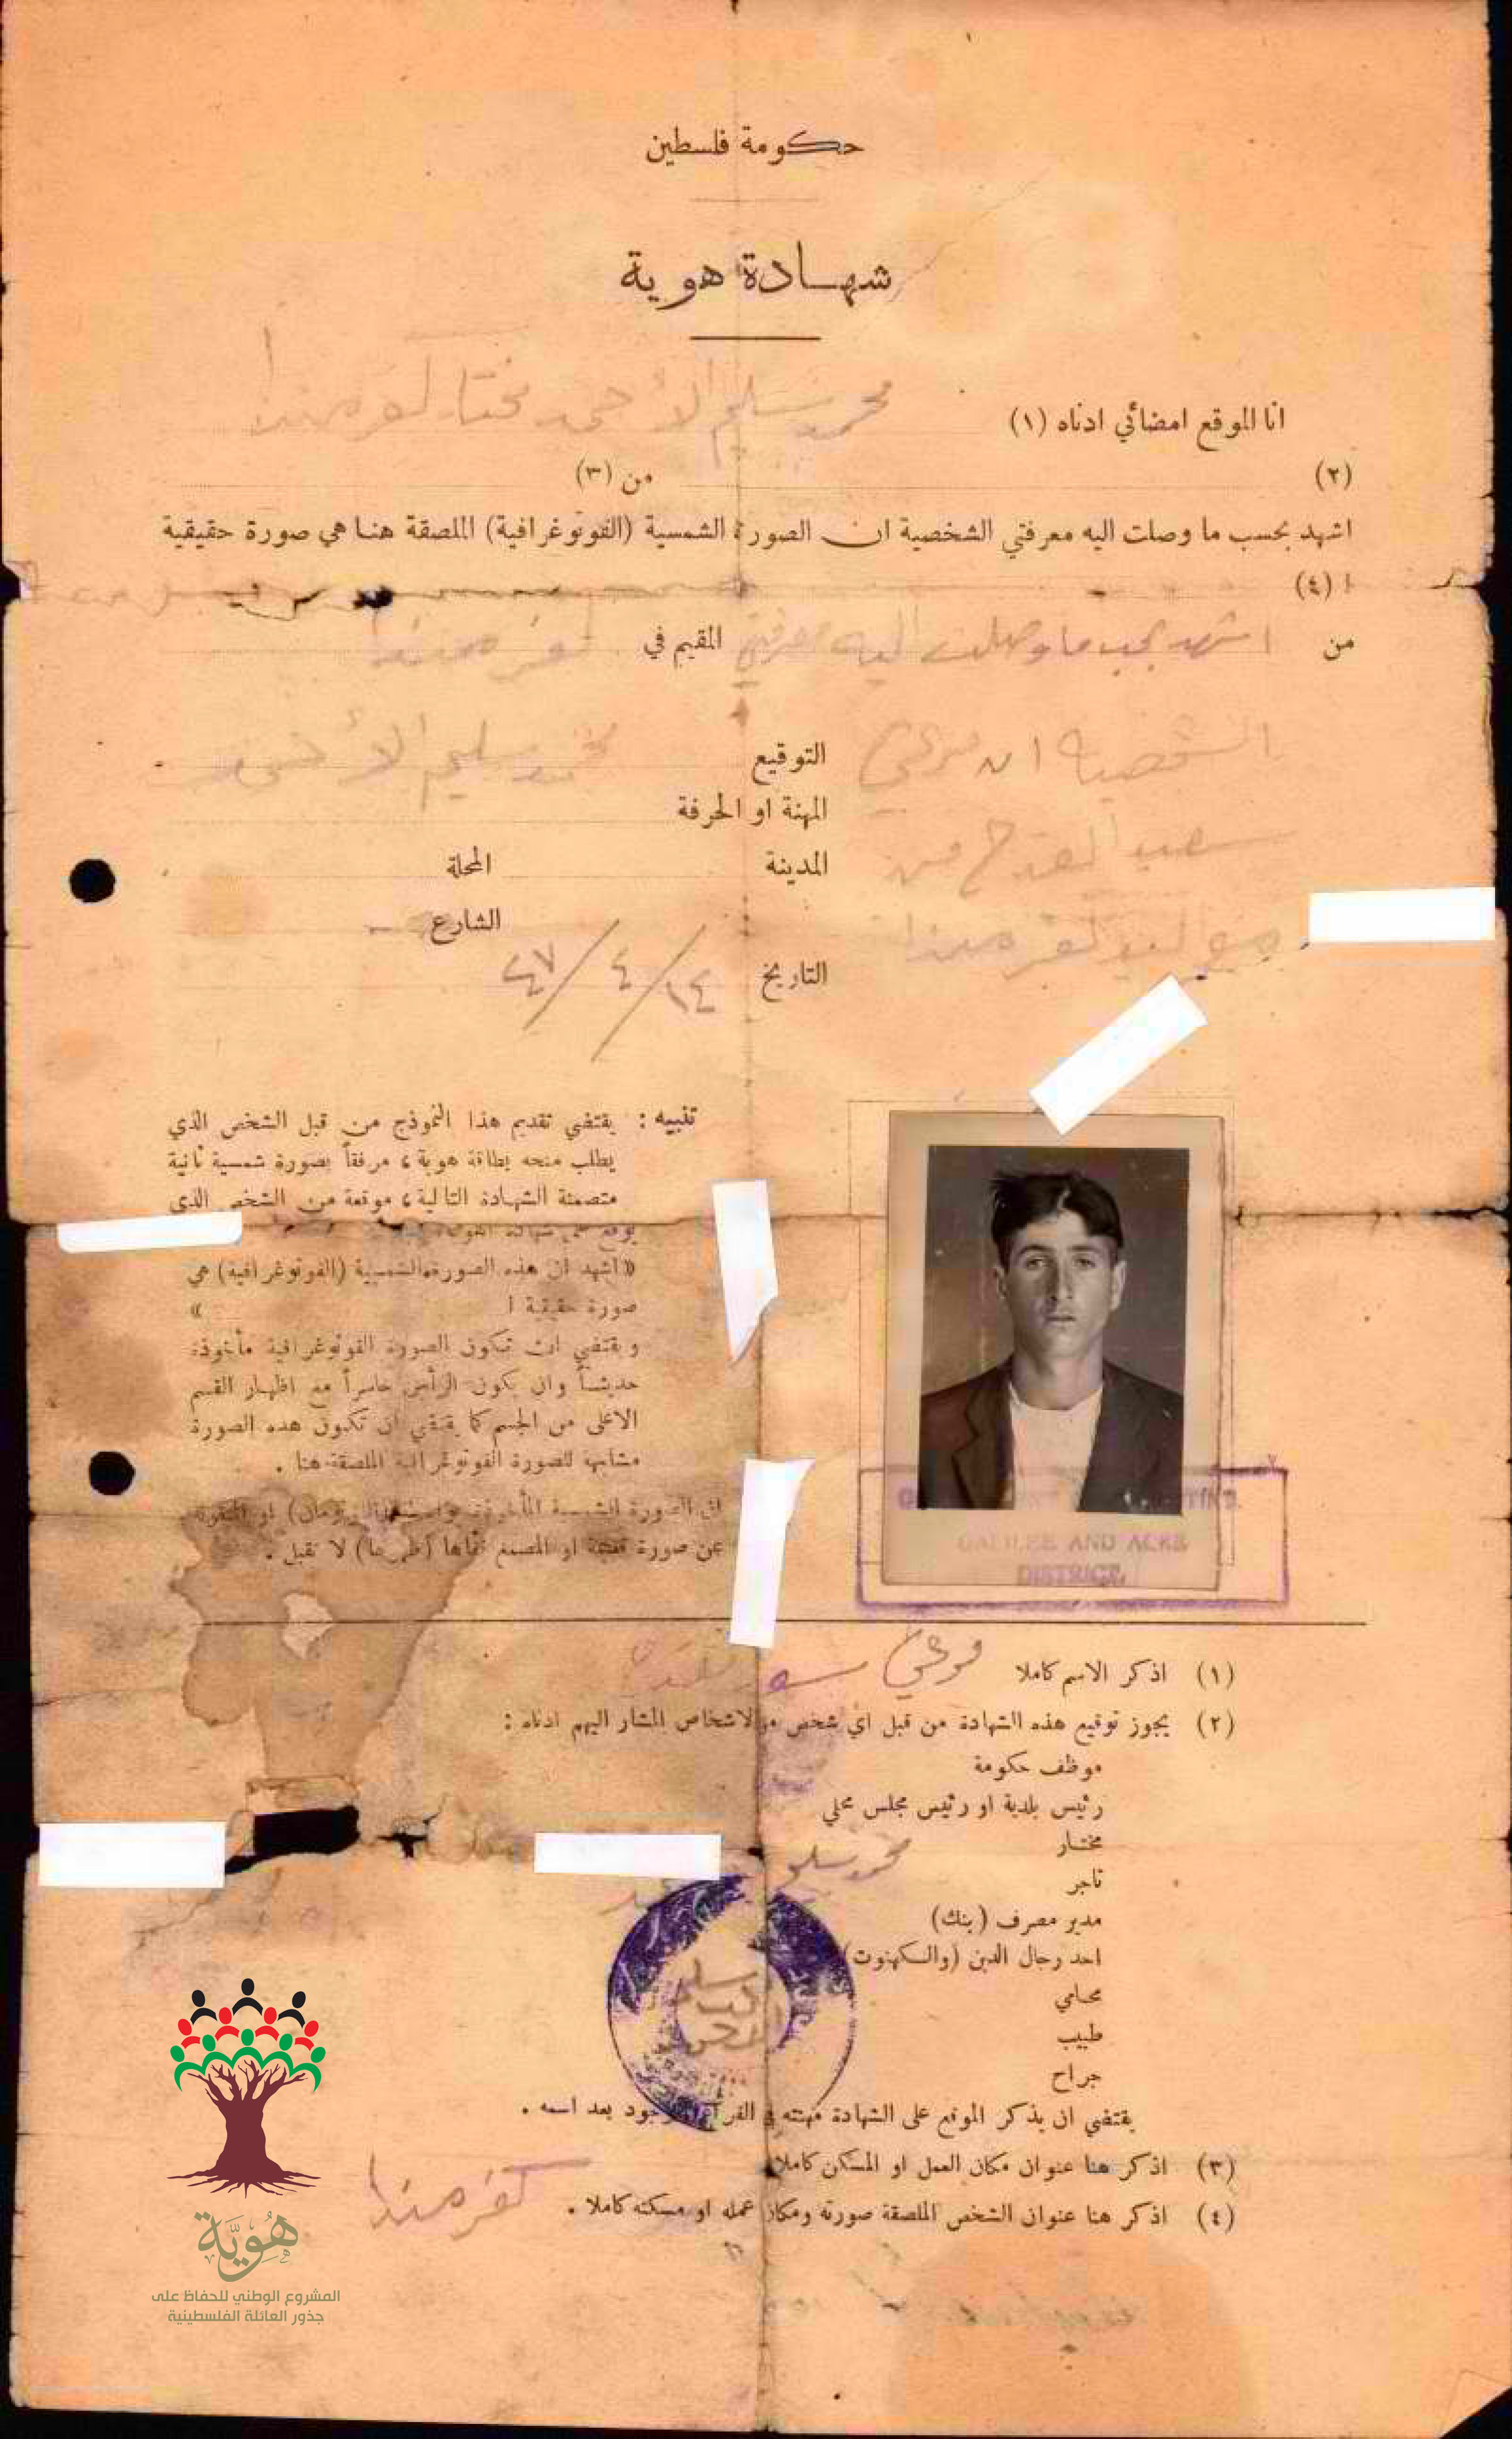 حكومة فلسطين
شهادة هوية
انا الموقع امضائي ادناه (١) محمد سليم الأحمد مختار كفرمندا
(٢) من (٣)
اشهد بحسب ما وصلت اليه معرفتي الشخصية ان الصورة الشمسية (الفوتوغرافية) الملصقة هنا هي صورة حقيقية
ا (٤)
من اشهد بحسب ما وصلت اليه معرفتي المقيم في كفرمندا
الشخصية ان مرعي
التوقيع محمد سليم الأحمد
المهنة او الحرفة
سعيد القدح من
المدينة المحلة
مواليد كفرمندا
الشارع
التاريخ ١٤/٤/٤٧
تنبيه : يقتضي تقديم هذا النموذج من قبل الشخص الذي
يطلب منحه بطاقة هوية ، مرفقاً بصورة شمسية ثانية
متضمنة الشهادة التالية ، موقعة من الشخص الذي
يوقع
« اشهد ان هذه الصورة الشمسية (الفوتوغرافية) هي
صورة حقيقية ا »
ويقتضي ان تكون الصورة الفوتوغرافية مأخوذة
حديثاً وان يكون الرأس حاسراً مع اظهار القسم
الاعلى من الجسم كما يقتضي ان تكون هذه الصورة
مشابهة للصورة الفوتوغرافية الملصقة هنا .
ان الصورة الشمسية المأخوذة او
عن صورة او المصمغ قفاها (ظهرها) لا تقبل .
GALILEE AND ACRE
DISTRICT
(١) اذكر الاسم كاملا مرعي
(٢) يجوز توقيع هذه الشهادة من قبل اي شخص من الاشخاص المشار اليهم ادناه :
موظف حكومة
رئيس بلدية او رئيس مجلس محلي
مختار
محمد سليم
تاجر
مدير مصرف (بنك)
احد رجال الدين (والكهنوت)
محامي
طبيب
جراح
يقتضي ان يذكر الموقع على الشهادة مهنته في الفراغ الموجود بعد اسمه .
(٣) اذكر هنا عنوان مكان العمل او المسكن كاملا
(٤) اذكر هنا عنوان الشخص الملصقة صورته ومكان عمله او مسكنه كاملا .
كفرمندا
هُوِيَّة
المشروع الوطني للحفاظ على
جذور العائلة الفلسطينية